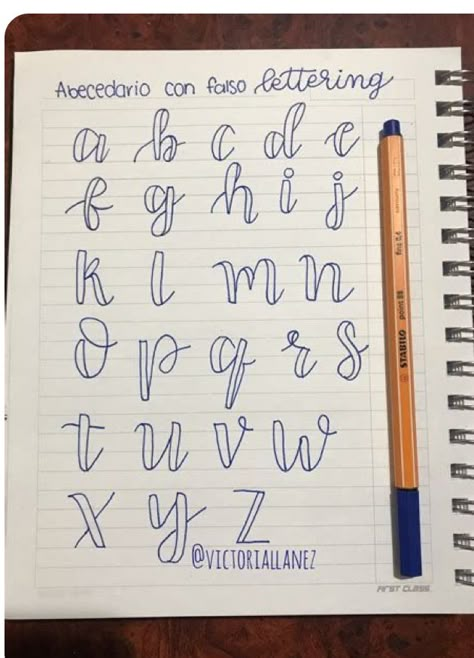 Abecedario con falso lettering
a b c d e
f g h i j
k l m n
o p q r s
t u v w
x y z
@VICTORIALLANEZ
STABILO point 88 fine 0,4
FIRST CLASS